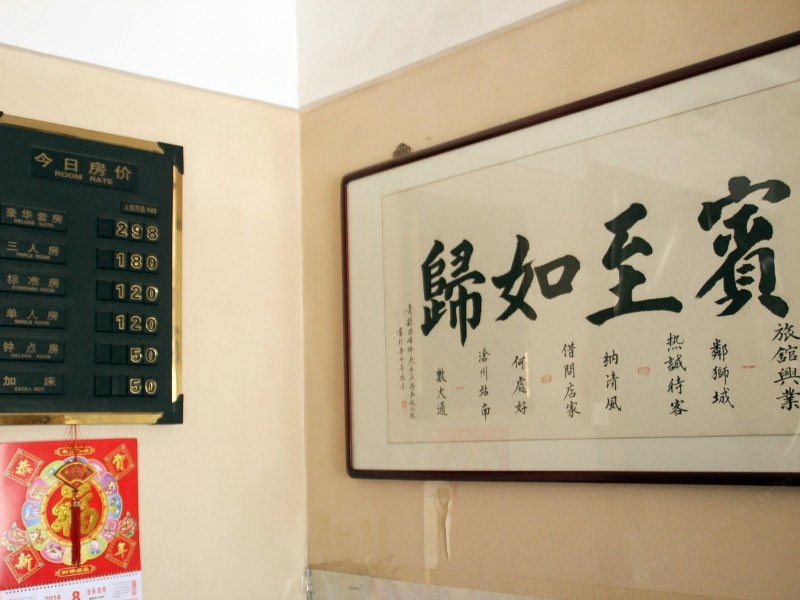 今日房价
ROOM RATE
人民币/元 RMB
豪华套房
DELUXE SUITE
298
三人房
TRIPLE ROOM
180
标准房
STANDARD ROOM
120
单人房
SINGLE ROOM
120
钟点房
50
加床
EXTRA BED
50
恭
贺
新
年
福
2014
8
賓至如歸
旅舘興業
鄰獅城
热誠待客
納清風
借問店家
何處好
滄州站南
數大通